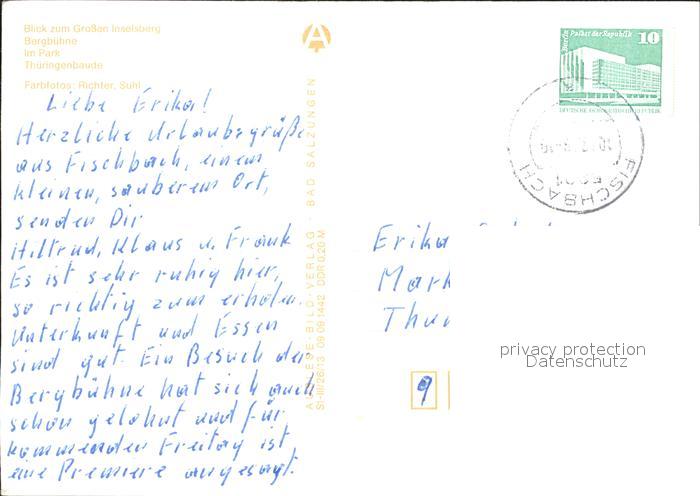 Blick zum Großen Inselsberg
Bergbühne
Im Park
Thüringenbaude
Farbfotos: Richter, Suhl
Liebe Erika!
Herzliche Urlaubsgrüße
aus Fischbach, einem
kleinen, sauberem Ort,
senden Dir
Hiltrud, Klaus u. Frank
Es ist sehr ruhig hier,
so richtig zum erholen.
Unterkunft und Essen
sind gut. Ein Besuch der
Bergbühne hat sich auch
schon gelohnt und für
kommenden Freitag ist
eine Premiere angesagt.
AUSLESE-BILD-VERLAG · BAD SALZUNGEN
St-III/26/13 09 09 1442 DDR 0,20 M
Berlin, Palast der Republik 10
DEUTSCHE DEMOKRATISCHE REPUBLIK
FISCHBACH
Erika
Mark
Thur
9
privacy protection
Datenschutz